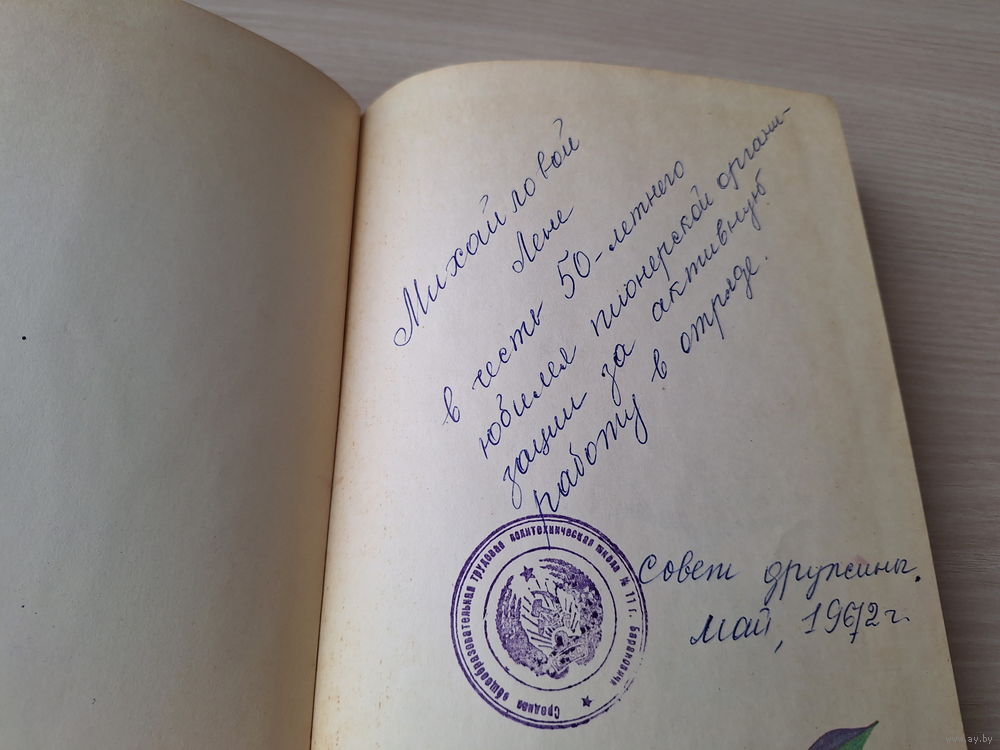 Михайловой
Лене
в честь 50-летнего
юбилея пионерской органи-
зации за активную
работу в отряде.
Совет дружины.
Май, 1972 г.
Средняя общеобразовательная трудовая политехническая школа № 11 г. Барановичи
www.ay.by